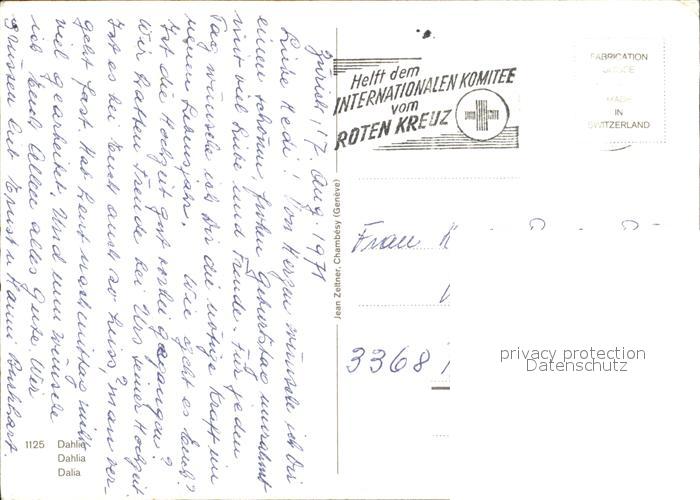 Zürich, 17. Aug. 1971
Liebe Hedi! Von Herzen wünsche ich Dir
einen schönen frohen Geburtstag umrahmt
mit viel Liebe und Freude. Für jeden
Tag wünsche ich Dir die nötige Kraft im
neuen Lebensjahr. Wie geht es Euch?
Ist die Hochzeit gut vorbei gegangen?
Wir hatten Freude bei Urs seiner Hochzeit
Ist es bei Euch auch so heiss? man ver-
geht fast. Hat heut nachmittag nicht
viel gearbeitet. Und nun wünsche
ich Euch Allen alles Gute. Wir
grüssen Euch Ernst u. Hanni
Helft dem
INTERNATIONALEN KOMITEE
vom
ROTEN KREUZ
FABRICATION
SUISSE
MADE
IN
SWITZERLAND
Jean Zeltner, Chambésy (Genève)
Frau
3368
privacy protection
Datenschutz
1125 Dahlie
Dahlia
Dalia